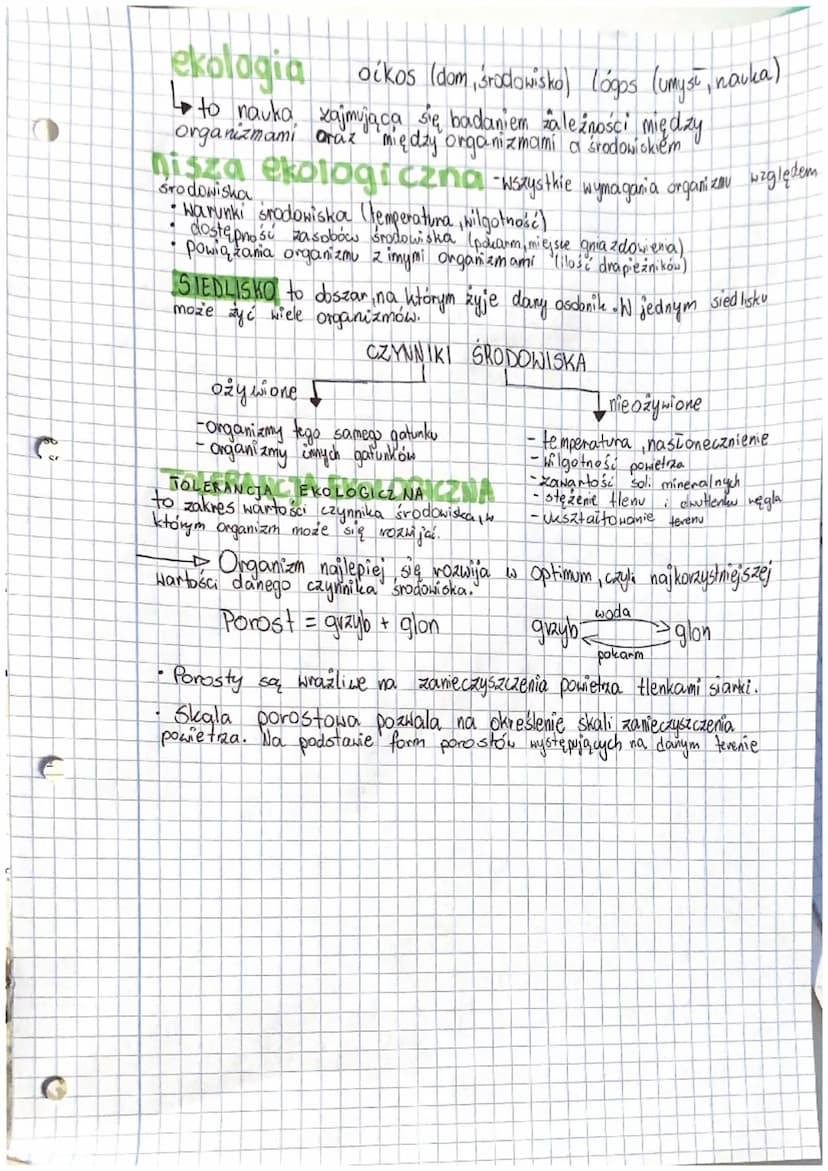 ekologia oikos (dom, środowisko) lógos (umysł, nauka)
↳ to nauka zajmująca się badaniem zależności między
organizmami oraz między organizmami a środowiskiem
nisza ekologiczna - wszystkie wymagania organizmu względem
środowiska
• warunki środowiska (temperatura, wilgotność)
• dostępność zasobów środowiska (pokarm, miejsce gniazdowiena)
• powiązania organizmu z innymi organizmami (ilość drapieżników)
SIEDLISKO to obszar, na którym żyje dany osobnik. W jednym siedlisku
może żyć wiele organizmów.
CZYNNIKI ŚRODOWISKA
ożywione
nieożywione
- organizmy tego samego gatunku
- organizmy innych gatunków
- temperatura, nasłonecznienie
- wilgotność powietrza
- zawartość soli mineralnych
- stężenie tlenu i dwutlenku węgla
- ukształtowanie terenu
TOLERANCJA EKOLOGICZNA
to zakres wartości czynnika środowiska, w
którym organizm może się rozwijać.
→ Organizm najlepiej się rozwija w optimum, czyli najkorzystniejszej
wartości danego czynnika środowiska.
Porost = grzyb + glon
woda
grzyb glon
pokarm
• Porosty są wrażliwe na zanieczyszczenia powietrza tlenkami siarki.
• Skala porostowa pozwala na określenie skali zanieczyszczenia
powietrza. Na podstawie form porostów występujących na danym terenie